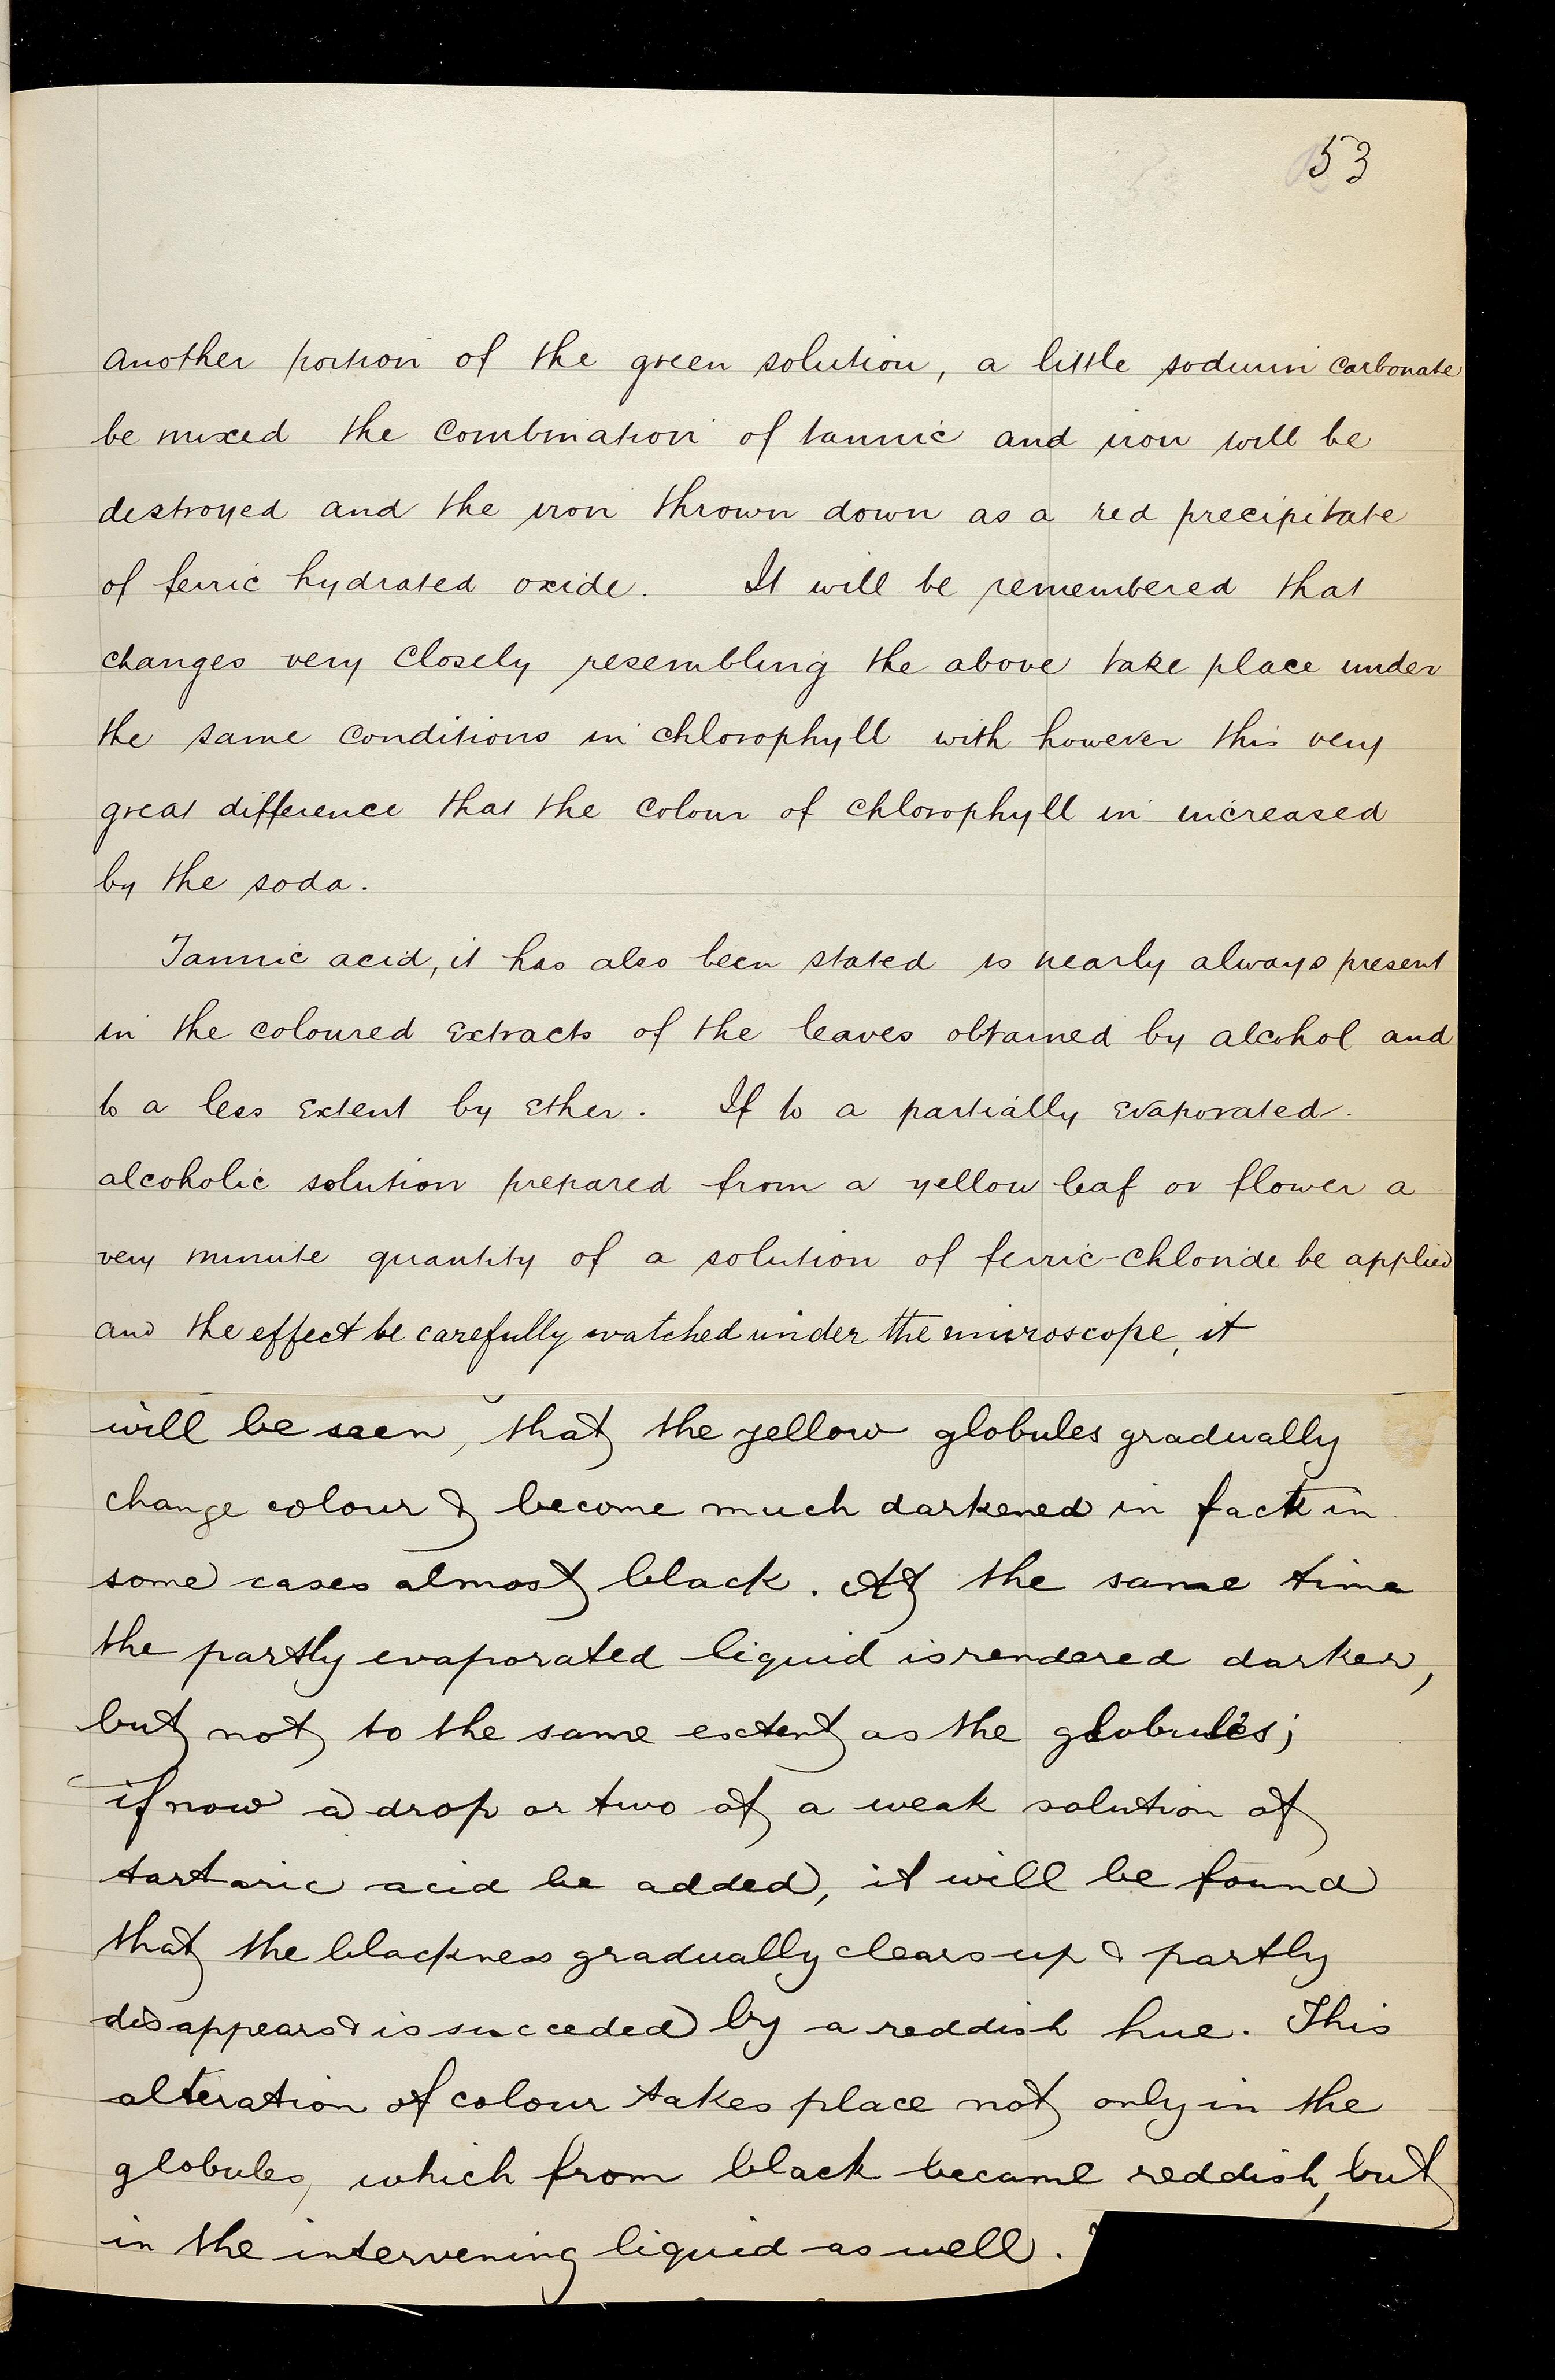 53
another portion of the green solution, a little sodium carbonate
be mixed the combination of tannic and iron will be
destroyed and the iron thrown down as a red precipitate
of ferric hydrated oxide. It will be remembered that
changes very closely resembling the above take place under
the same conditions in chlorophyll with however this very
great difference that the colour of chlorophyll in increased
by the soda.
Tannic acid, it has also been stated is nearly always present
in the coloured extracts of the leaves obtained by alcohol and
to a less extent by ether. If to a partially evaporated.
alcoholic solution prepared from a yellow leaf or flower a
very minute quantity of a solution of ferric-chloride be applied
and the effect be carefully watched under the microscope, it
will be seen, that the yellow globules gradually
change colour & become much darkened in fact in
some cases almost black. At the same time
the partly evaporated liquid is rendered darker,
but not to the same extent as the globules;
if now a drop or two of a weak solution of
tartaric acid be added, it will be found
that the blackness gradually clears up & partly
disappears & is succeded by a reddish hue. This
alteration of colour takes place not only in the
globules, which from black became reddish, but
in the intervening liquid as well.